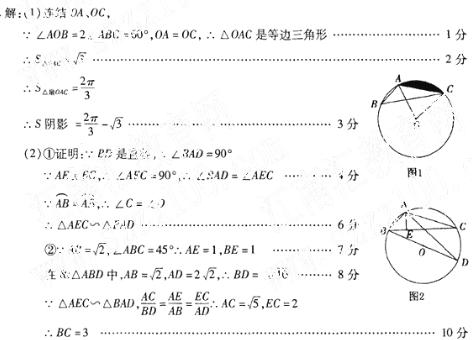 解:(1)连结OA、OC,
∵ ∠AOB=2∠ABC=60°,OA=OC, ∴ △OAC 是等边三角形 ………… 1 分
∴ S△OAC=√3 ………… 2 分
∴ S扇OAC=2π/3
∴ S 阴影 =2π/3-√3 ………… 3 分
(2)①证明:∵ BD 是直径, ∴ ∠BAD=90°
∵ AE⊥BC, ∴ ∠AEC=90°, ∴ ∠BAD=∠AEC ………… 4 分
∵ AB=AB, ∴ ∠C=∠D
∴ △AEC∽△BAD ………… 6 分
②∵ AB=√2,∠ABC=45° ∴ AE=1,BE=1 ………… 7 分
在Rt△ABD 中,AB=√2,AD=2√2, ∴ BD=√10 ………… 8 分
∵ △AEC∽△BAD, AC/BD=AE/AB=EC/AD ∴ AC=√5,EC=2
∴ BC=3 ………… 10 分
A
B
C
O
图1
A
B
E
C
O
D
图2